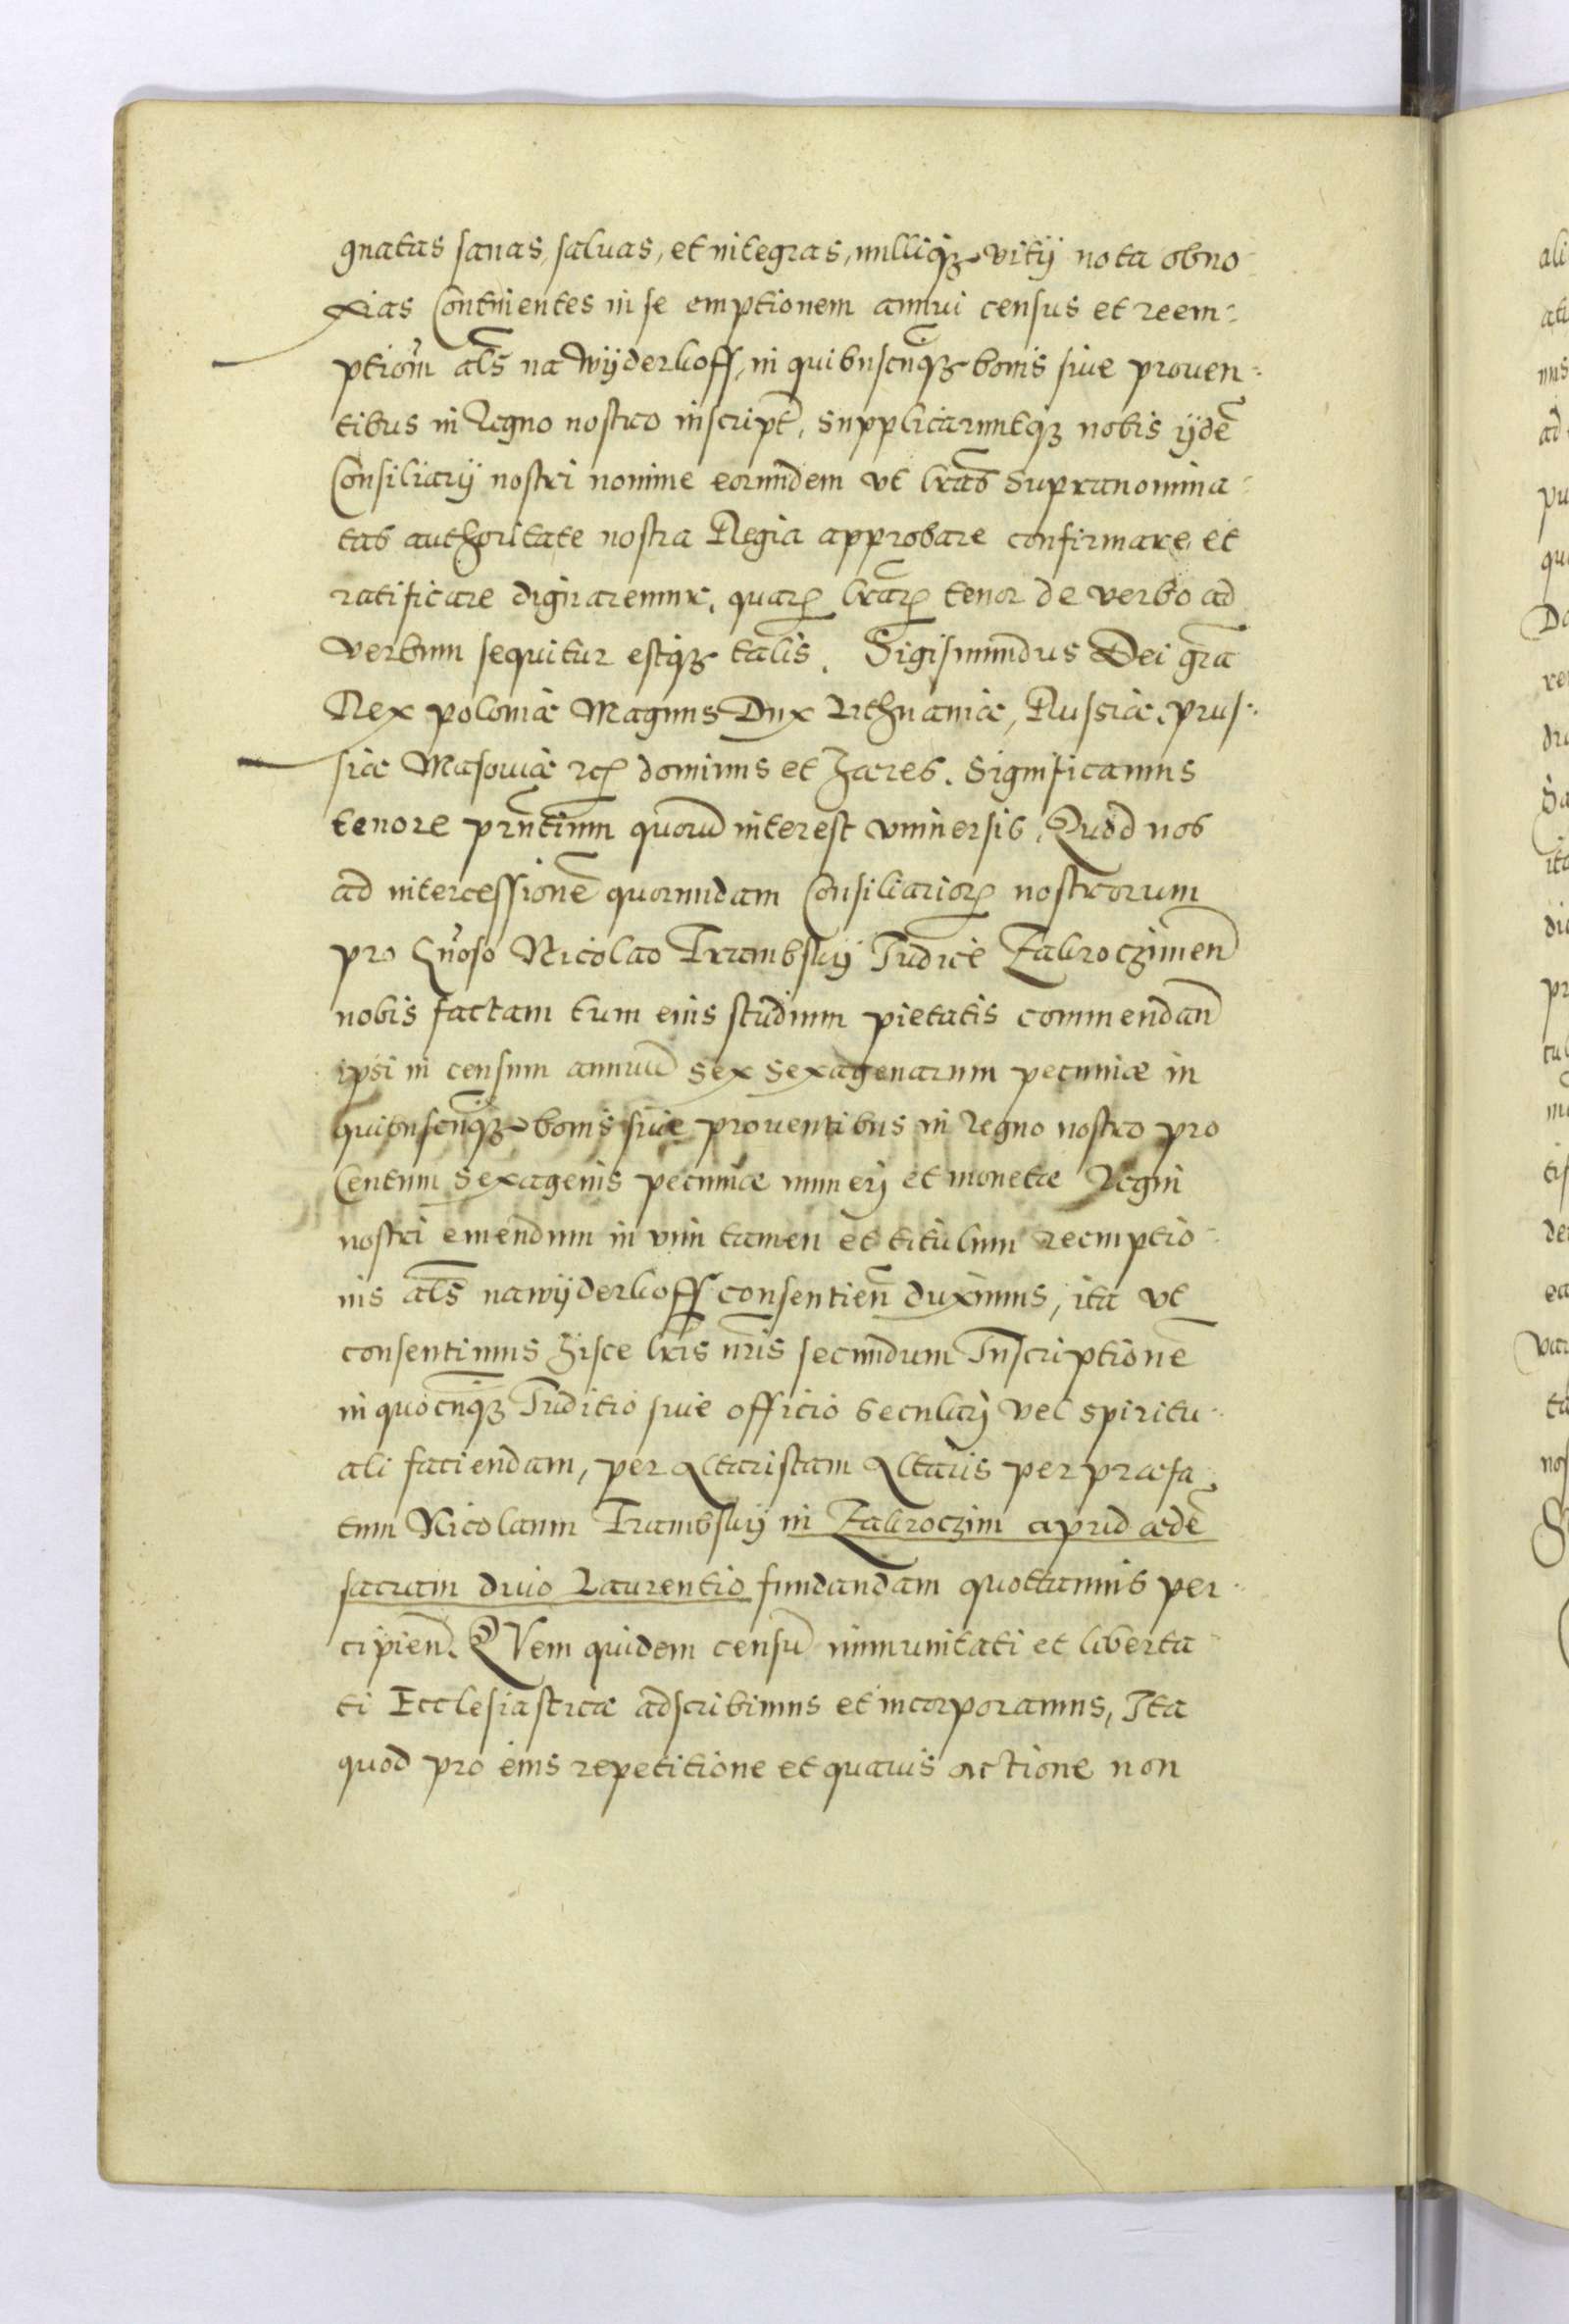 gnatas sanas, saluas, et integras, nulliq3 vitij nota obno
xias Continentes in se emptionem annui census et reem
ptiom̃ als̃ na wyderkoff, in quibuscuq̃3 bonis siue prouen
tibus in Regno nostro inscript̃, supplicaruntq3 nobis ijdẽ
Consiliarij nostri nomine eorundem vt lr̃as supranomina
tas authoritate nostra Regia approbare confirmare et
ratificare dignaremur, quaꝝ lr̃aꝝ tenor de verbo ad
verbum sequitur estq3 talis. Sigismundus Dei gr̃a
Rex poloniæ Magnus Dux Lithuaniæ, Russiæ, prus
siæ Masouiæ ꝛcꝫ dominus et hæres. Significamus
tenore pr̃ntium quorũ interest vniuersis, Quod nos
ad intercessionẽ quorundam Consiliarioꝝ nostrorum
pro Gñoso Nicolao Trambsky Iudice Zakroczimeñ
nobis factam tum eius studium pietatis commendañ
ipsi in censum annuũ sex sexagenarum pecuniæ in
quibuscuq̃3 bonis siue prouentibus in regno nostro pro
Centum sexagenis pecuniæ numerj et monetæ Regni
nostri emendum in vim tamen et titulum reemptio
nis als̃ nawyderkoff consentieñ duximus, ita vt
consentimus hisce lr̃is nr̃is secundum Inscriptionẽ
in quocuq̃3 Iuditio siue officio secularj vel spiritu
ali faciendam, per Altaristam Altaris per præfa
tum Nicolaum Trambsky in Zakroczim apud ædẽ
sacram diuo Laurentio fundandam quotannis per
cipieñ. QVem quidem censũ immunitati et liberta
ti Ecclesiasticæ adscribimus et incorporamus, Ita
quod pro eius repetitione et quauis actione non